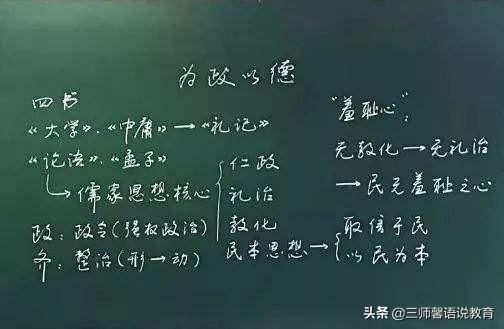 为政以德
四书
《大学》、《中庸》→《礼记》
《论语》、《孟子》
↳儒家思想核心{仁政
礼治
教化
政：政令(强权政治)
齐：整治(形→动)
民本思想→{取信于民
以民为本
"羞耻心"：
无教化→无礼治
→民无羞耻之心
头条 @三师馨语说教育